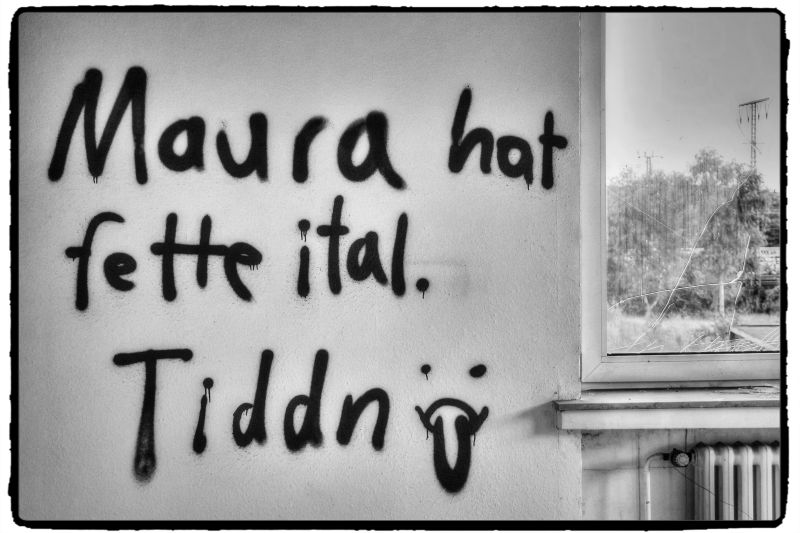 Maura hat
fette ital.
Tiddn